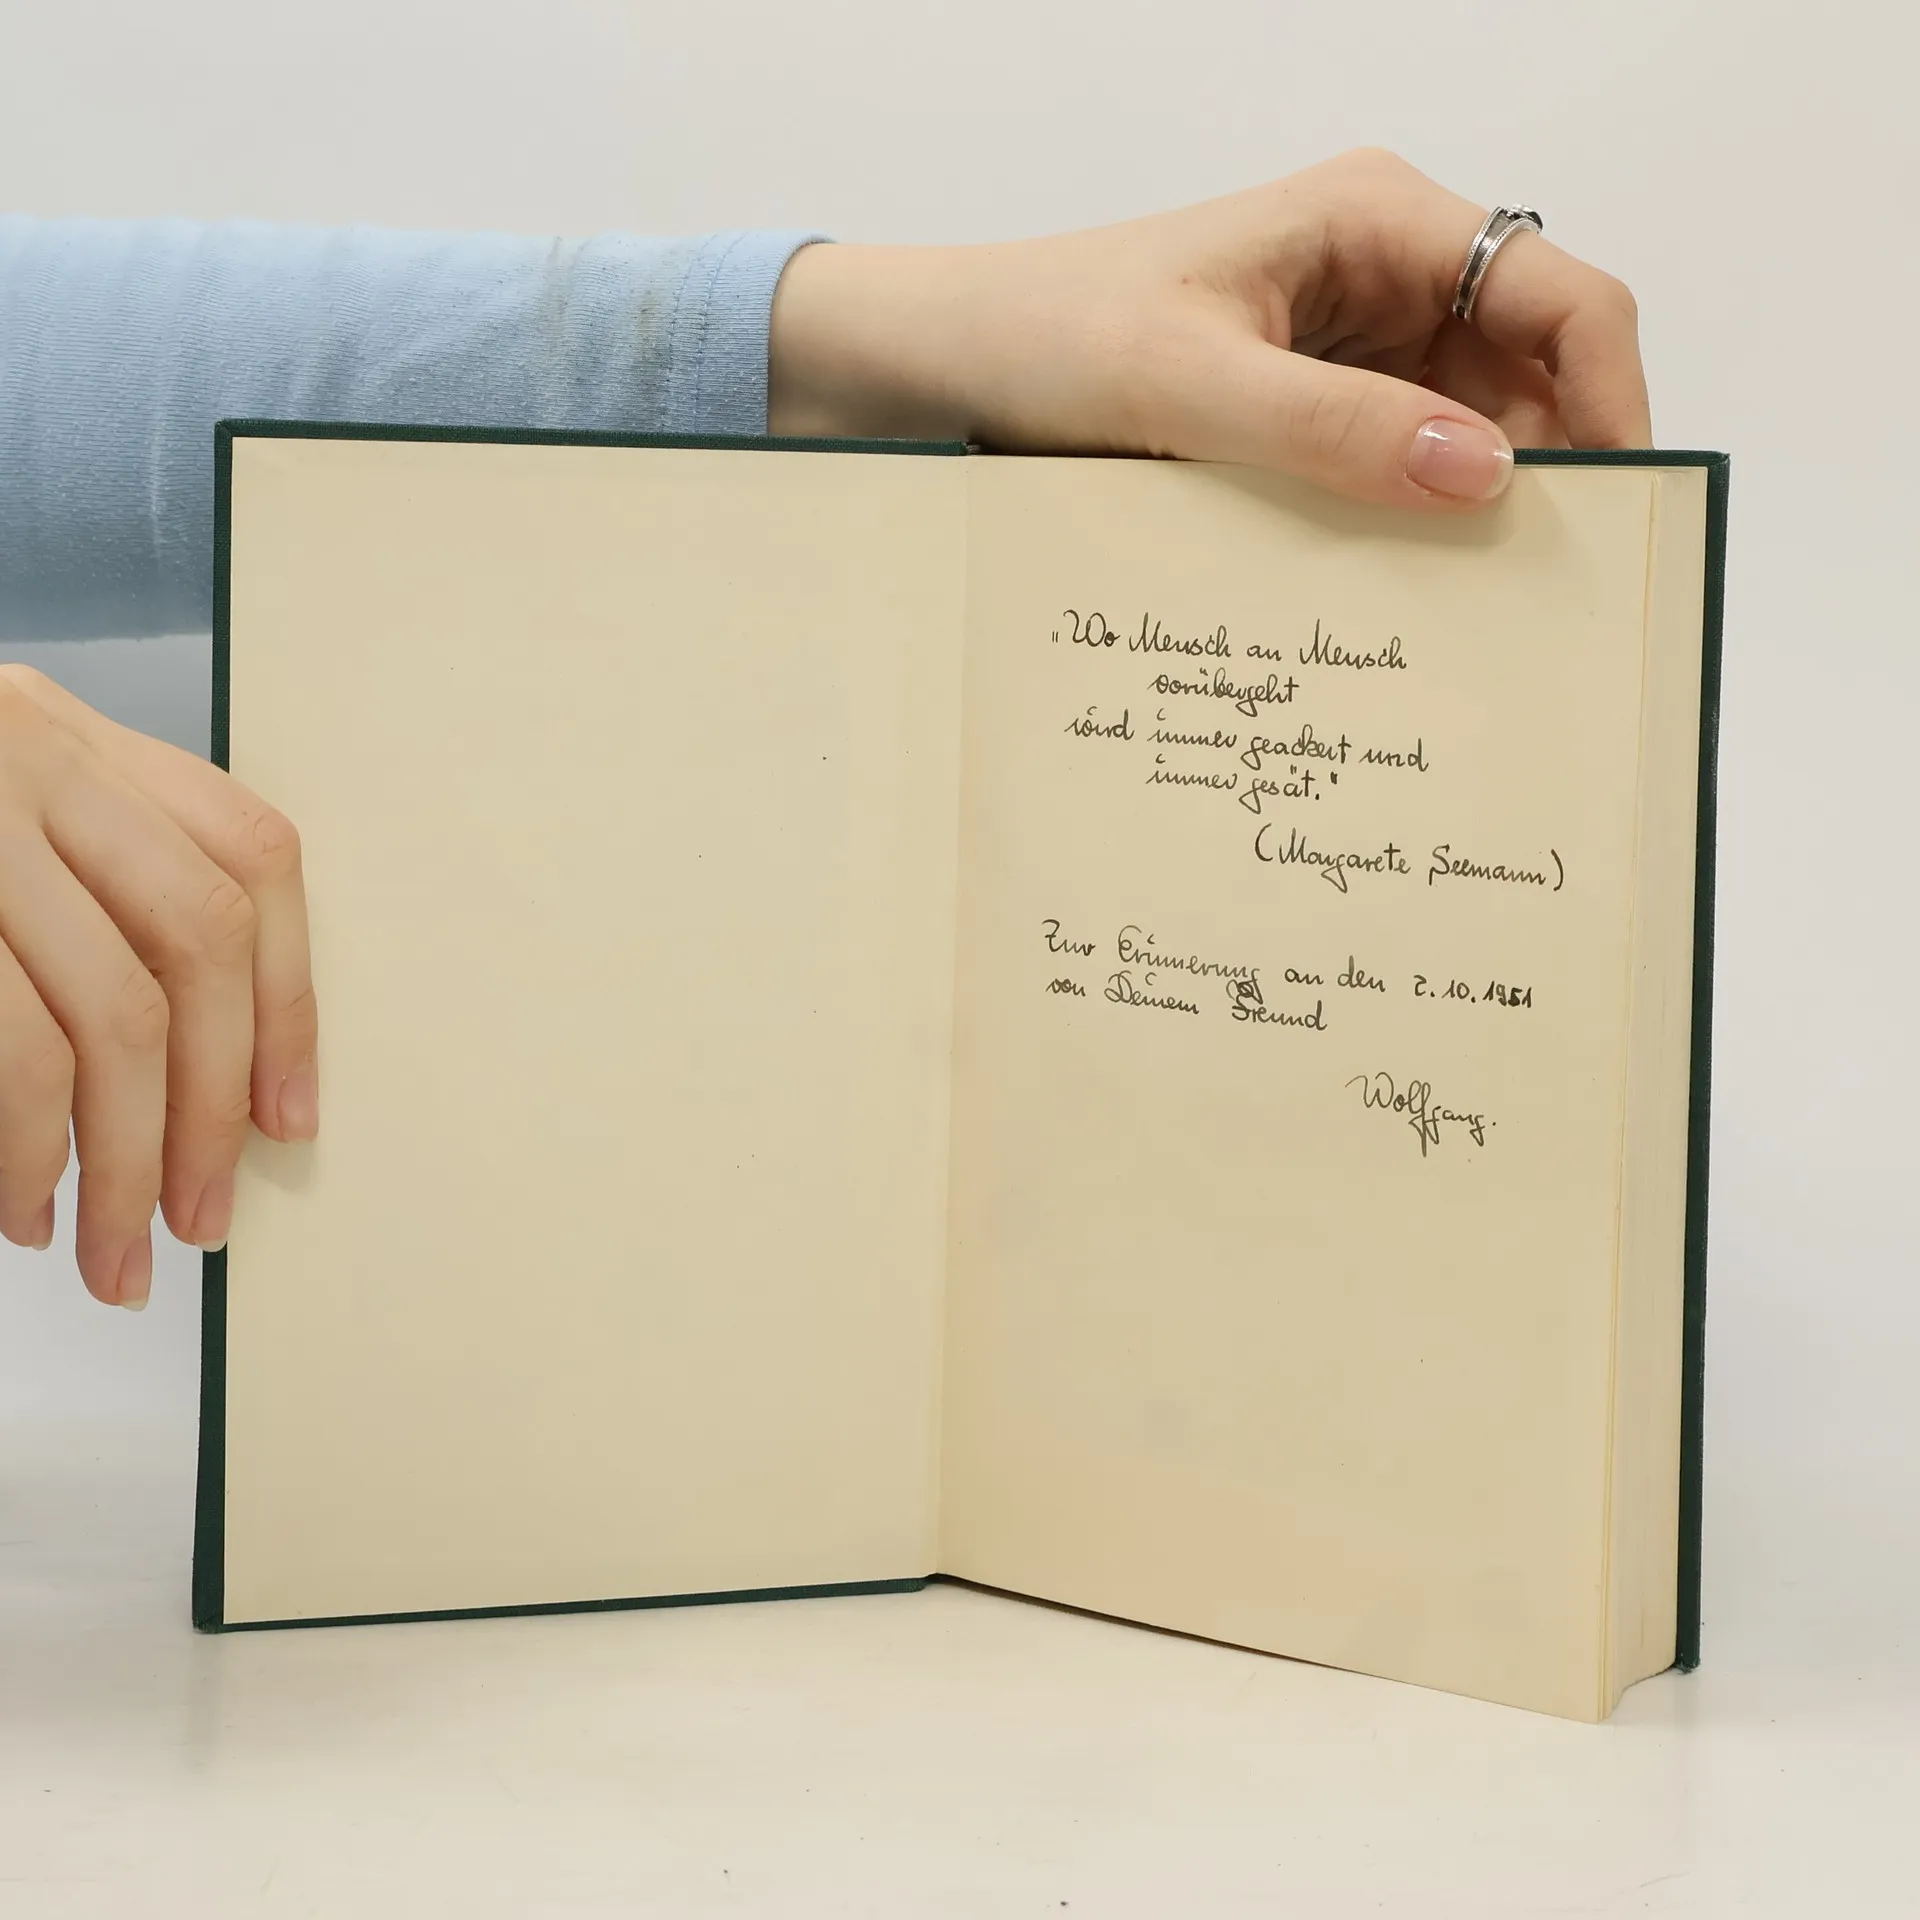 "Wo Mensch an Mensch
vorübergeht
wird immer geackert und
immer gesät."
(Margarete Seemann)
Zur Erinnerung an den 2.10.1951
von Deinem Freund
Wolfgang.